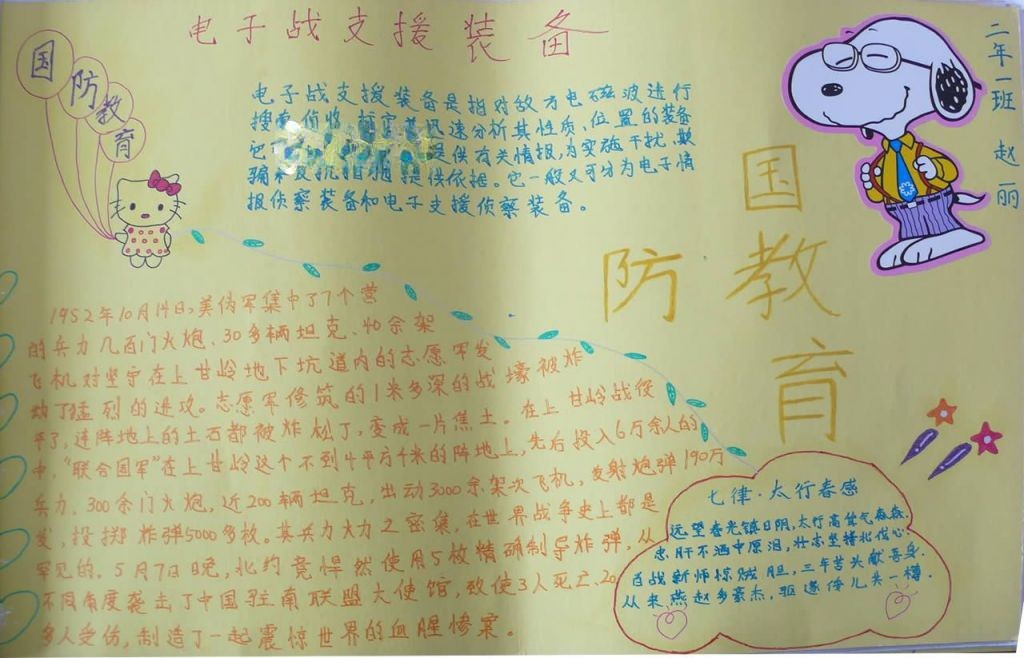 电子战支援装备
国
防
教
育
二年一班 赵丽
电子战支援装备是指对敌方电磁波进行
搜索
迅速分析其性质、位置的装备
提供有关情报,为实施干扰、欺
骗
提供依据。它一般又可分为电子情
报侦察装备和电子支援侦察装备。
国
防教
育
1952年10月14日,美伪军集中了7个营
的兵力几百门火炮、30多辆坦克、40余架
飞机对坚守在上甘岭地下坑道内的志愿军发
动了猛烈的进攻。志愿军修筑的1米多深的战壕被炸
平了,连阵地上的土石都被炸松了,变成一片焦土。在上甘岭战役
中,“联合国军”在上甘岭这个不到4平方千米的阵地上,先后投入6万余人的
兵力、300余门火炮,近200辆坦克,出动3000余架次飞机,发射炮弹190万
发,投掷炸弹5000多枚。其兵力火力之密集,在世界战争史上都是
罕见的。5月7日晚,北约竟悍然使用5枚精确制导炸弹,从
不同角度袭击了中国驻南联盟大使馆,致使3人死亡、20
多人受伤,制造了一起震惊世界的血腥惨案。
七律·太行春感
远望春光镇日阴,太行高耸气森森。
忠肝不洒中原泪,壮志坚持北伐心。
百战新师惊贼胆,三年苦头献吾身。
从来燕赵多豪杰,驱逐倭儿共一樽。